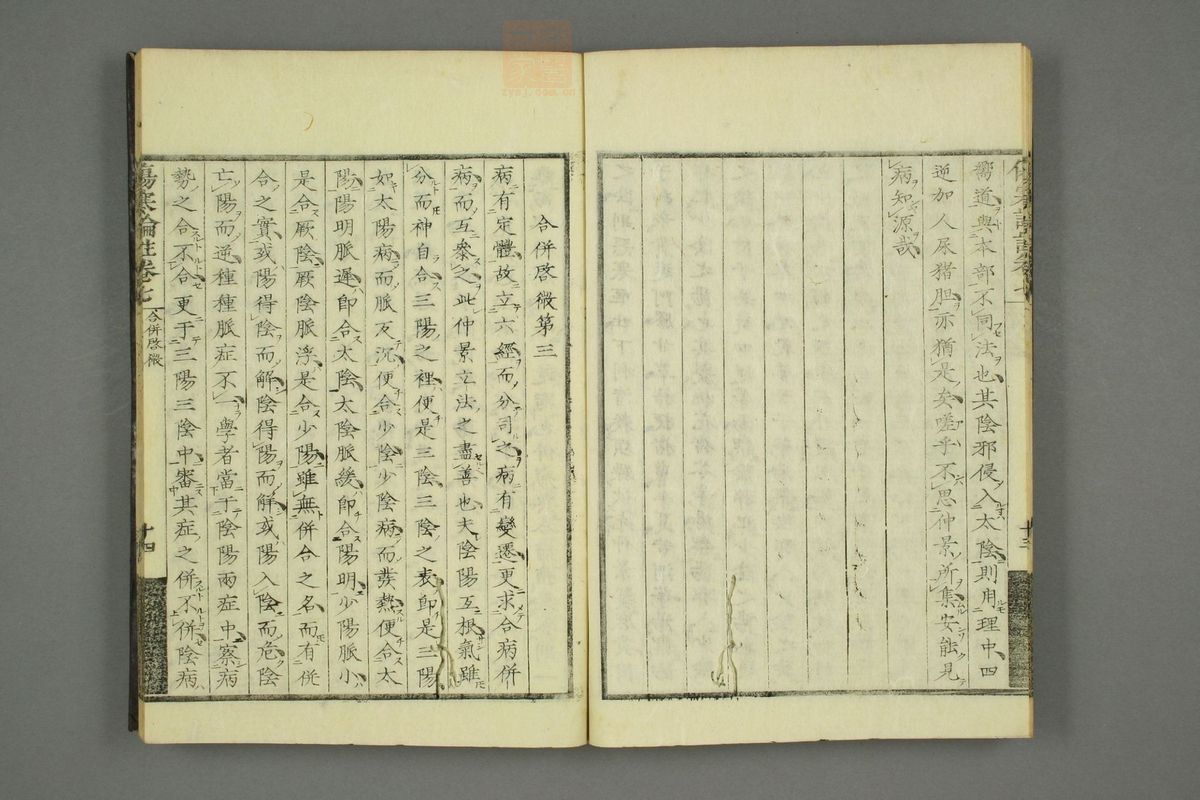 嚮道與本部不同法也其陰邪侵入太陰則用理中四
逆加人尿猪胆亦猶是矣嗟乎不思仲景所集安能見
病知源哉
合併啓微第三
病有定體故立六經而分司之病有變遷更求合病併
病而互參之此仲景立法之盡善也夫陰陽互根氣雖
分而神自合三陽之裡便是三陰三陰之表卽是三陽
如太陽病而脈反沉便合少陰少陰病而發熱便合太
陽陽明脈遲卽合太陰太陰脈緩卽合陽明少陽脈小
是合厥陰厥陰脈浮是合少陽雖無併合之名而有併
合之實或陽得陰而解陰得陽而解或陽入陰而危陰
亡陽而逆種種脈症不一學者當于陰陽兩症中察病
勢之合不合更于三陽三陰中審其症之併不併陰病
傷寒論註卷七
合併啓微
十四
zysj.com.cn